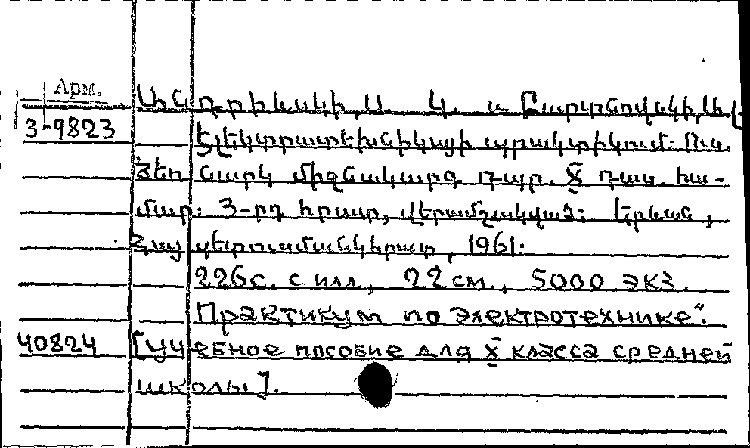 Арм.
3-9823
Անդրիևսկի, Ա. Կ. և
Էլեկտրատեխնիկայի պրակտիկում: Ուս.
ձեռնարկ միջնակարգ դպր. X դաս. հա-
մար: 3-րդ հրատ., վերամշակված: Երևան,
Հայպետուսմանկհրատ, 1961:
226с. с илл., 22 см., 5000 экз.
Практикум по электротехнике".
40824 [учебное пособие для X класса средней
школы].